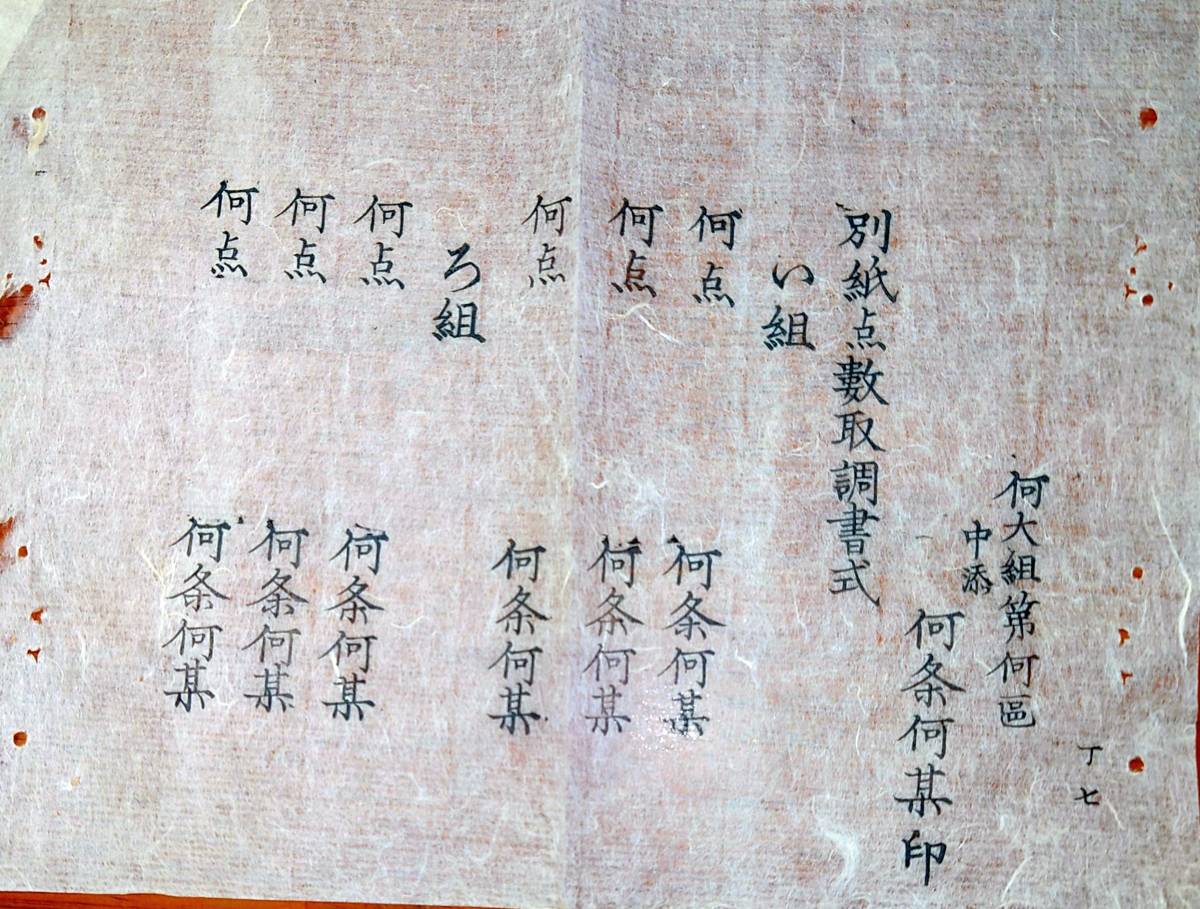 丁七
何大組第何區
中添
何条何某印
別紙点數取調書式
い組
何点 何条何某
何点 何条何某
何点 何条何某
ろ組
何点 何条何某
何点 何条何某
何点 何条何某